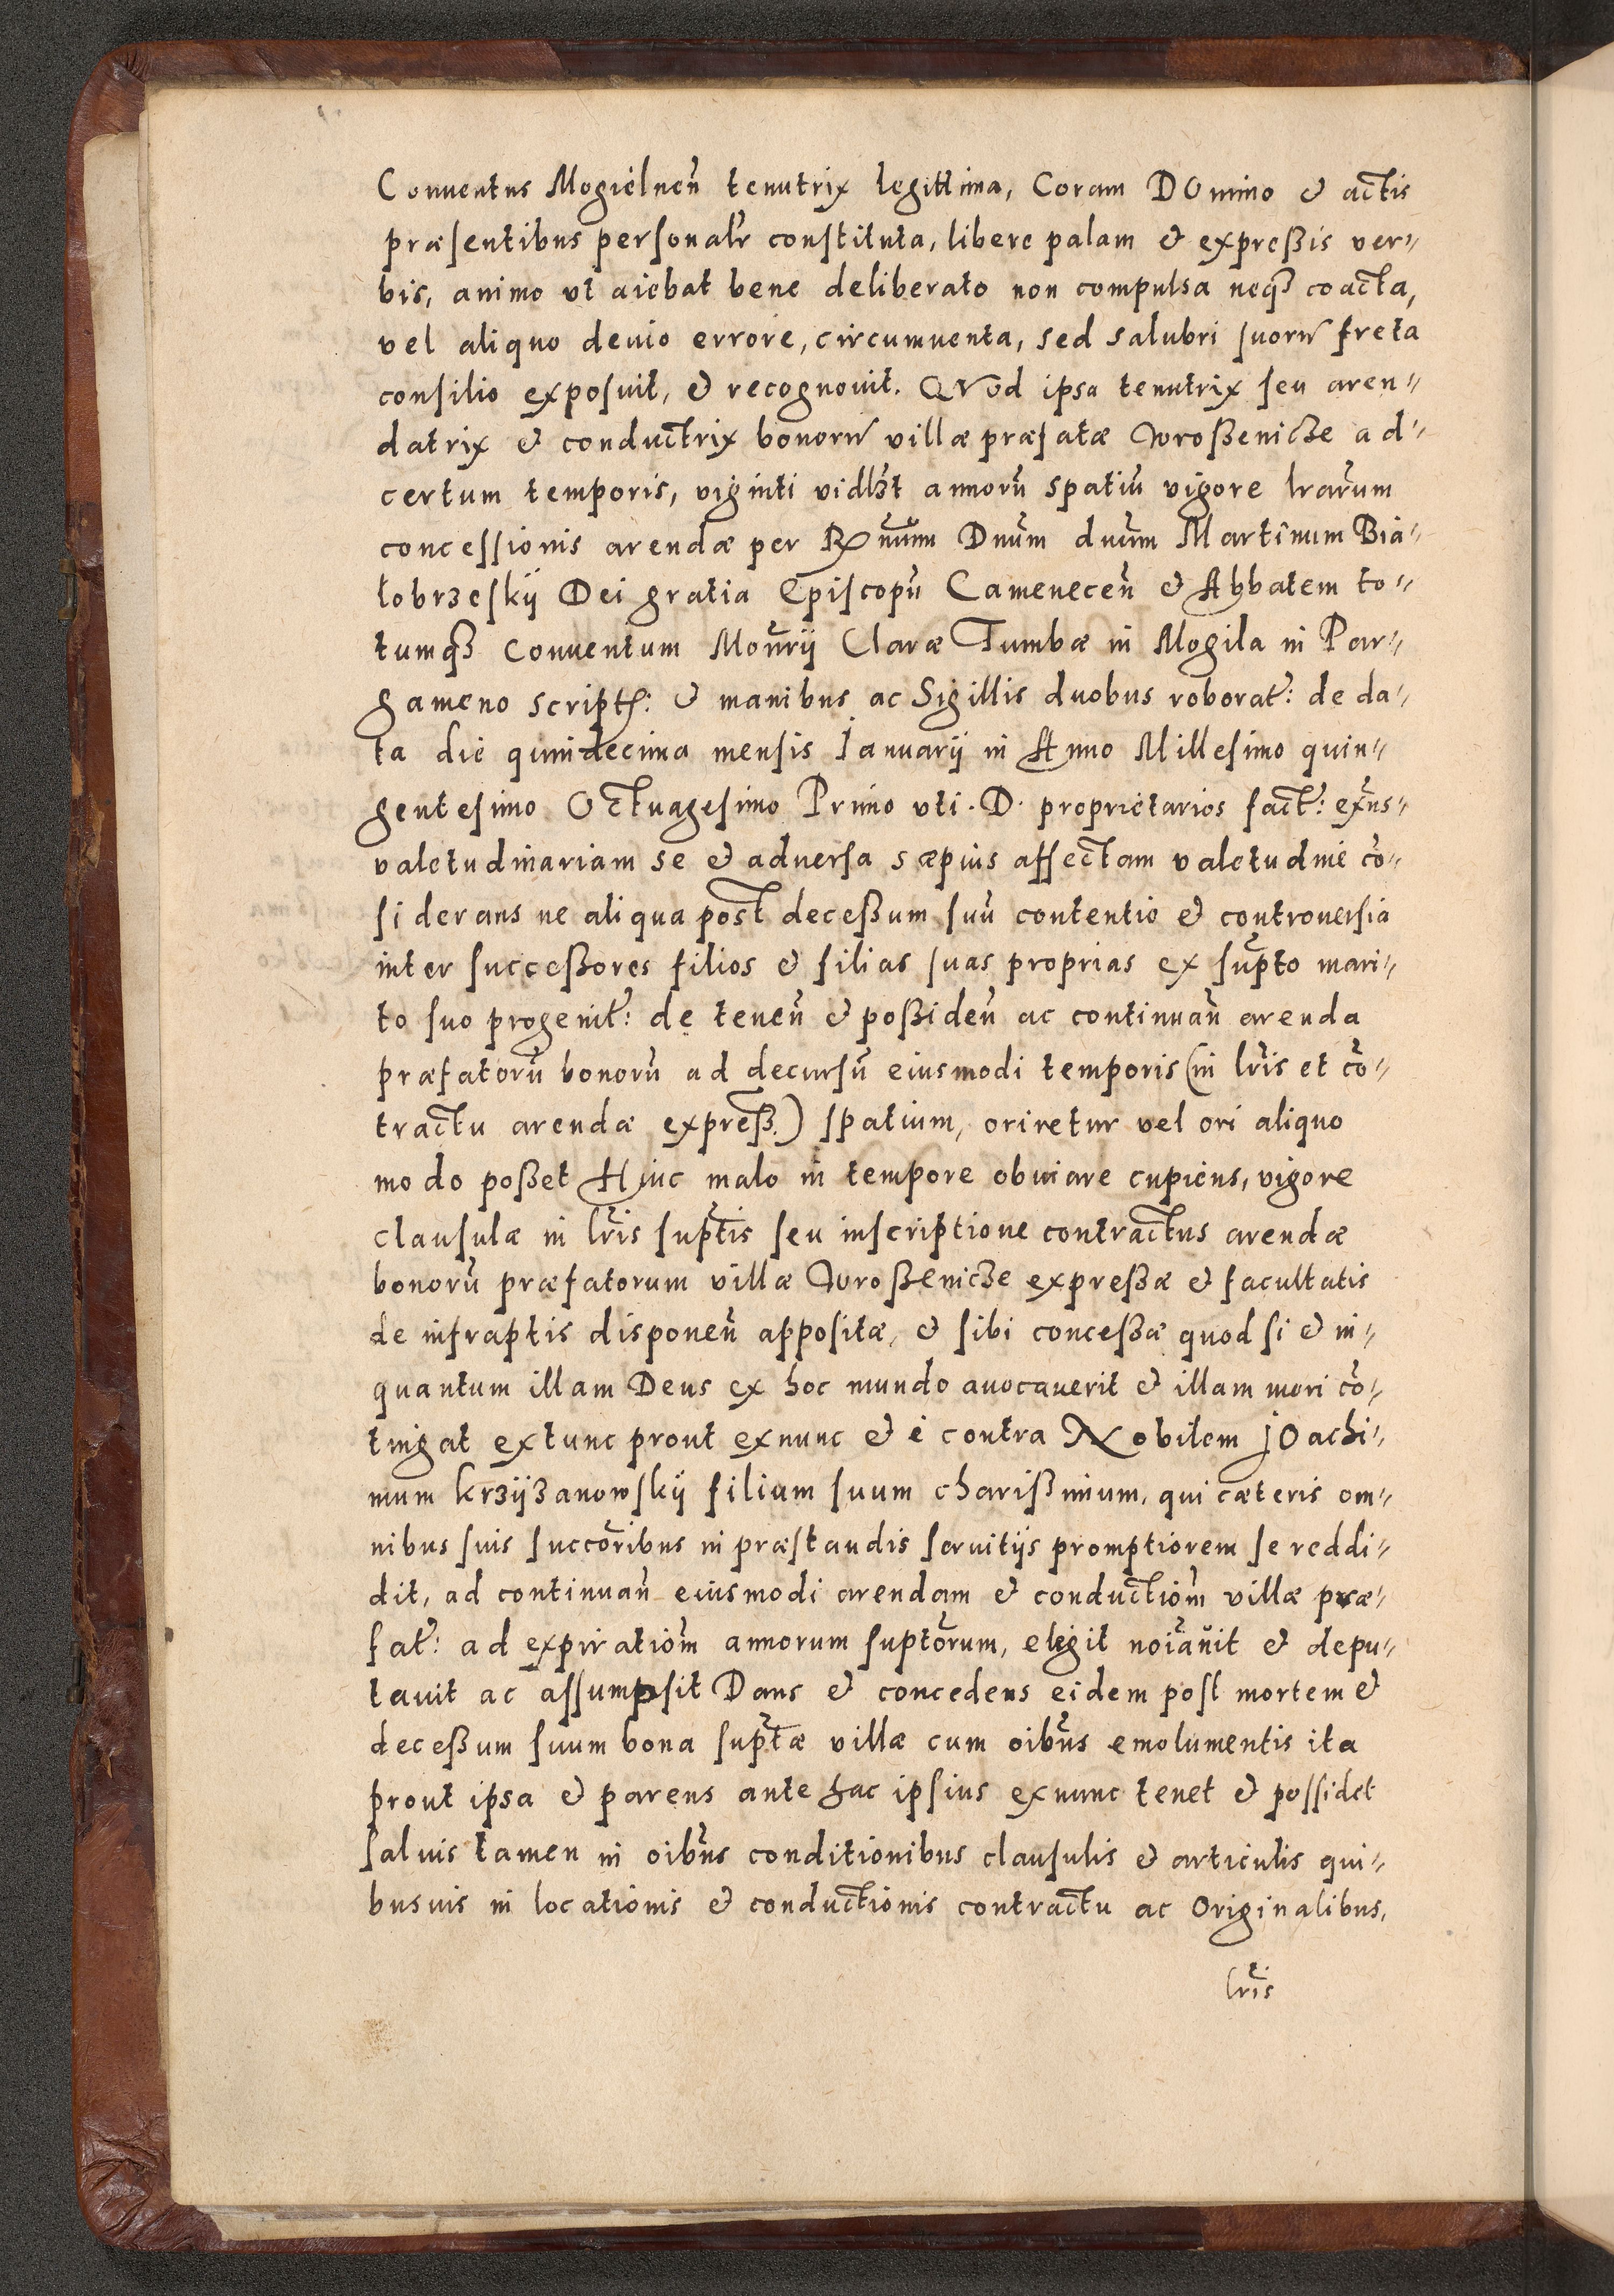 Conuentus Mogielneñ tenutrix legittima, Coram DOmino & actis
præsentibus personalr̃ constituta, libere palam & expreßis ver⸗
bis, animo vt aiebat bene deliberato non compulsa neqꝫ coacta,
vel aliquo deuio errore, circumuenta, sed salubri suorꝝ freta
consilio exposuit, & recognouit. QVod ipsa tenutrix seu aren⸗
datrix & conductrix bonorꝝ villæ præfatæ Wroßenicze ad⸗
certum temporis, viginti vidlꝫt annorũ spatiũ vigore lrarũm
concessionis arendæ per Rñdũm Dnũm dnũm Martinum Bia⸗
łobrzeskÿ Dei gratia Episcopũ Cameneceñ & Abbatem to⸗
tumqꝫ Conuentum Monr̃ÿ Claræ Tumbæ in Mogila in Par⸗
gameno script: & manibus ac Sigillis duobus roborat: de da⸗
ta die quindecima mensis Ianuarÿ in Anno Millesimo quin⸗
gentesimo Octuagesimo Primo vti. D. proprietarios fact: exñs⸗
valetudinariam se & aduersa sæpius affectam valetudine cõ⸗
siderans ne aliqua post deceßum suũ contentio & controuersia
inter succeßores filios & filias suas proprias ex suptõ mari⸗
to suo progenit: de teneñ & poßideñ ac continuañ arenda
præfatorũ bonorũ ad decursũ eiusmodi temporis (in lr̃is et cõ⸗
tractu arendæ expreß.) spatium, oriretur vel ori aliquo
modo poßet Huic malo in tempore obuiare cupiens, vigore
clausulæ in lr̃is suptĩs seu inscriptione contractus arendæ
bonorũ præfatorum villæ Wroßenicze expreßæ & facultatis
de infraptis disponeñ appositæ, & sibi conceßæ quod si & in⸗
quantum illam Deus ex hoc mundo auocauerit & illam mori cõ⸗
tingat extunc prout exnunc & è contra Nobilem jOachi⸗
mum krzÿzanowskÿ filium suum charißimum, qui cæteris om⸗
nibus suis succõribus in præstandis seruitÿs promptiorem se reddi⸗
dit, ad continuañ eiusmodi arendam & conductiom̃ villæ præ⸗
fat: ad expiratiom̃ annorum suptõrum, elegit noiãuit & depu⸗
tauit ac assumpsit Dans & concedens eidem post mortem &
deceßum suum bona suptæ̃ villæ cum oibũs emolumentis ita
prout ipsa & parens ante hac ipsius exnunc tenet & possidet
saluis tamen in oibũs conditionibus clausulis & articulis qui⸗
busuis in locationis & conductionis contractu ac Originalibus,
lr̃is